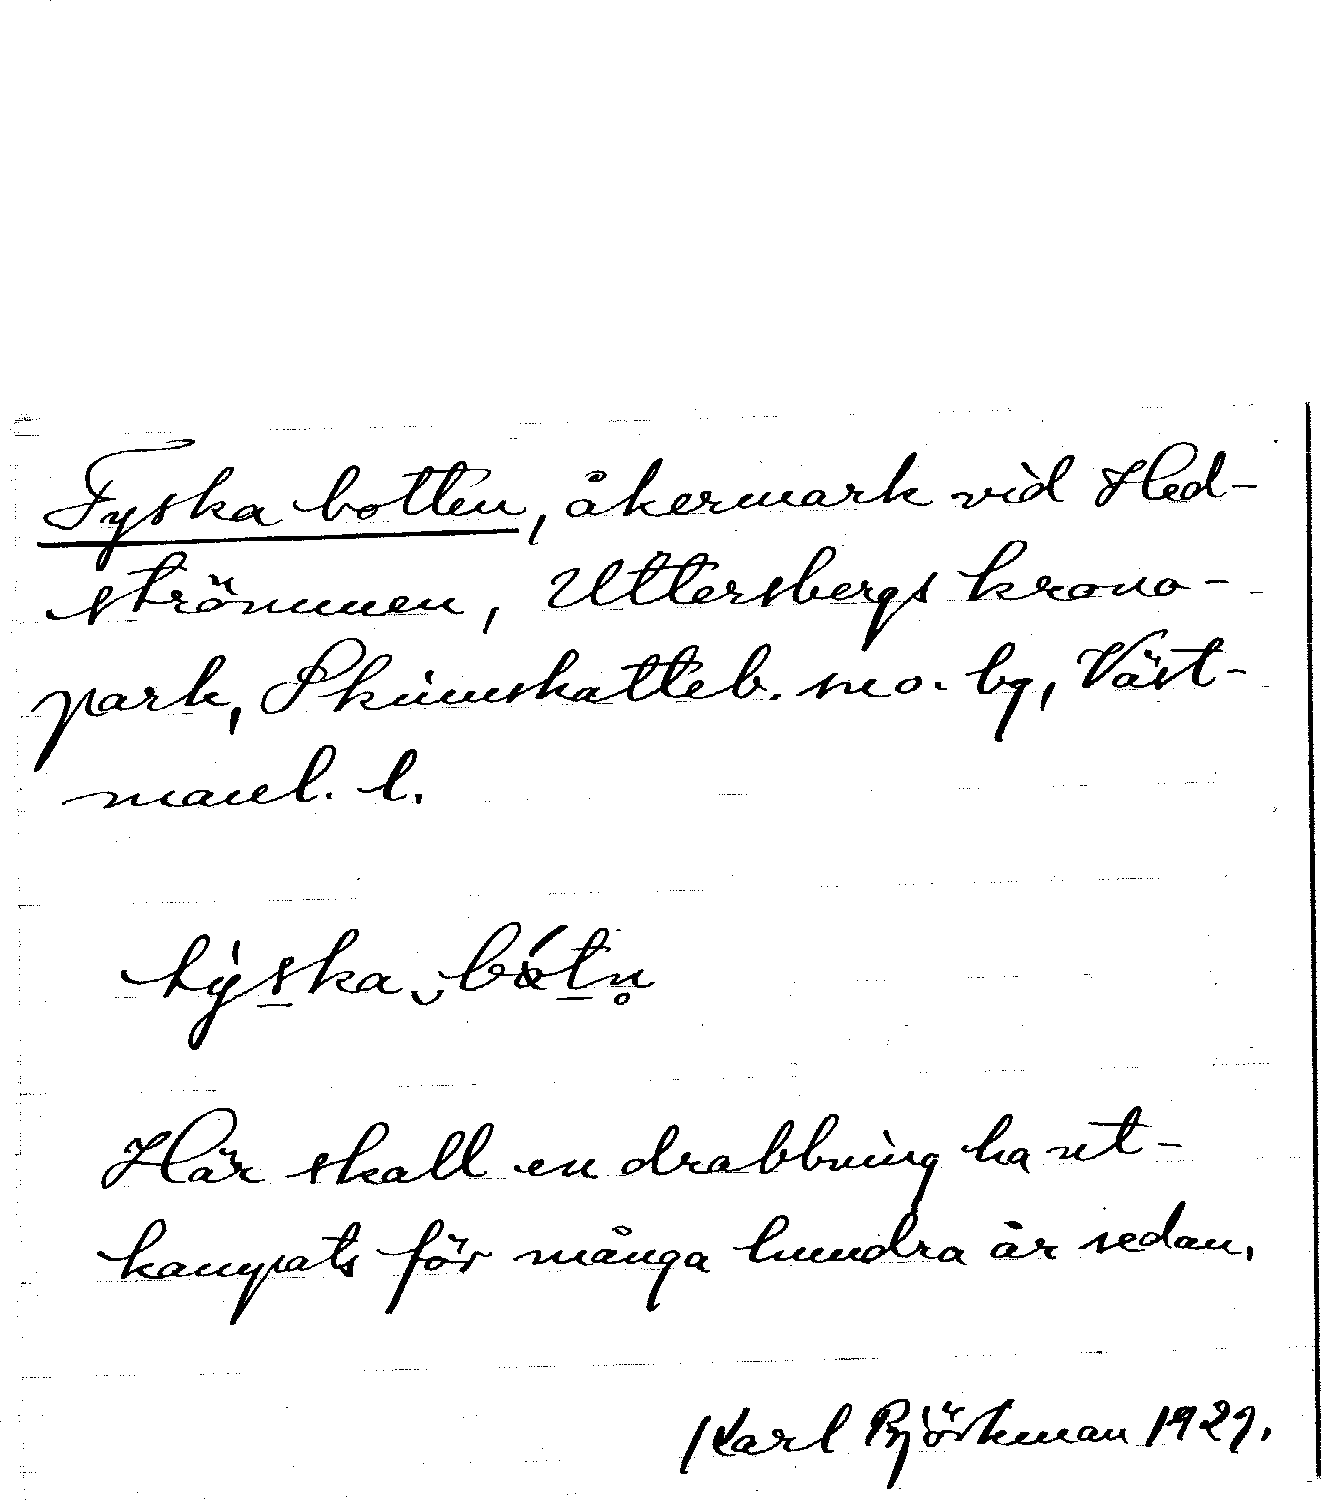 Tyska botten, åkermark vid Hed-
strömmen, Uttersbergs krono-
park, Skinnskatteb. sn o. bg, Väst-
manl. l.
tỳska ‿bòtn̥
Här skall en drabbning ha ut-
kampats för många hundra år sedan.
Karl Björkman 1929.